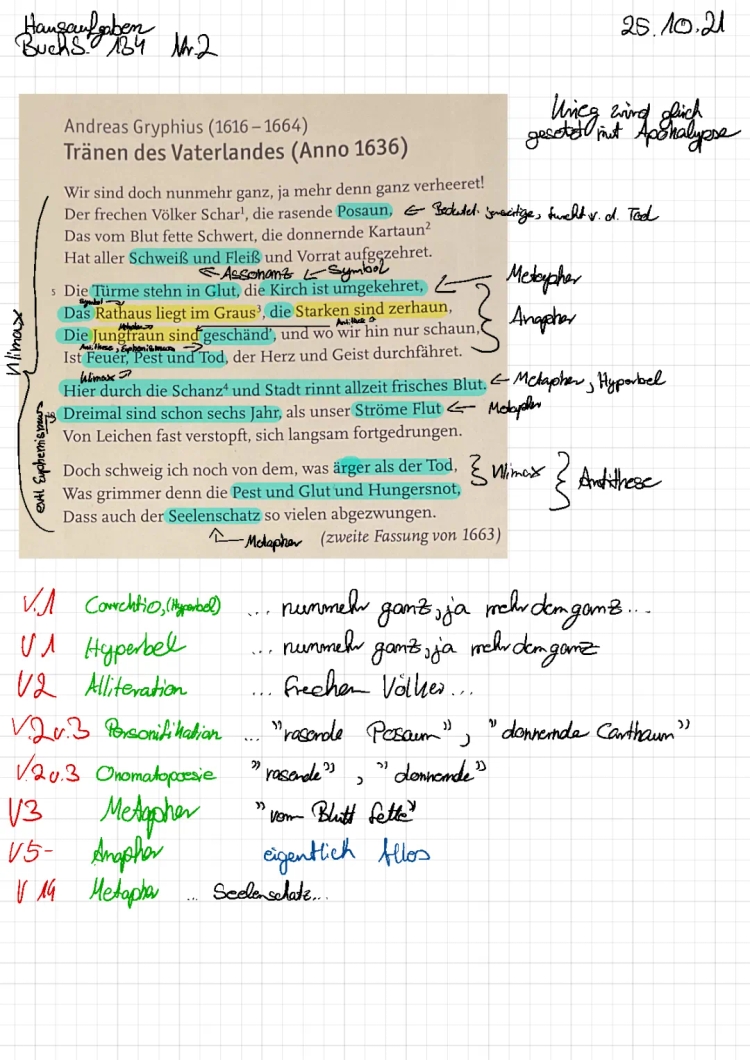 Hausaufgaben
Buch S. 134 Nr. 2
25.10.21
Krieg wird gleich
gesetzt mit Apokalypse
Andreas Gryphius (1616–1664)
Tränen des Vaterlandes (Anno 1636)
Wir sind doch nunmehr ganz, ja mehr denn ganz verheeret!
Der frechen Völker Schar¹, die rasende Posaun, ← v. d. Tod
Das vom Blut fette Schwert, die donnernde Kartaun²
Hat aller Schweiß und Fleiß und Vorrat aufgezehret.
Assonanz Symbol
5 Die Türme stehn in Glut, die Kirch ist umgekehret, Metapher
Symbol
Das Rathaus liegt im Graus³, die Starken sind zerhaun, Anapher
Metapher Antithese
Die Jungfraun sind geschänd', und wo wir hin nur schaun,
Antithese, Euphemismus
Ist Feuer, Pest und Tod, der Herz und Geist durchfähret.
Klimax
Klimax
Hier durch die Schanz⁴ und Stadt rinnt allzeit frisches Blut. ← Metapher, Hyperbel
Dreimal sind schon sechs Jahr, als unser Ströme Flut ← Metapher
Von Leichen fast verstopft, sich langsam fortgedrungen.
evtl Euphemismus
Doch schweig ich noch von dem, was ärger als der Tod, Klimax Antithese
Was grimmer denn die Pest und Glut und Hungersnot,
Dass auch der Seelenschatz so vielen abgezwungen.
Metapher (zweite Fassung von 1663)
V.1 Correchtio, (Hyperbel) ... nunmehr ganz, ja mehr denn ganz...
V1 Hyperbel ... nunmehr ganz, ja mehr denn ganz
V2 Alliteration ... frechen Völker...
V.2u.3 Personifikation ... "rasende Posaun", "donnernde Carthaun"
V.2u.3 Onomatopoesie "rasende", "donnernde"
V3 Metapher "vom Blutt fette"
V5- Anapher eigentlich Alles
V 14 Metapher ... Seelenschatz...